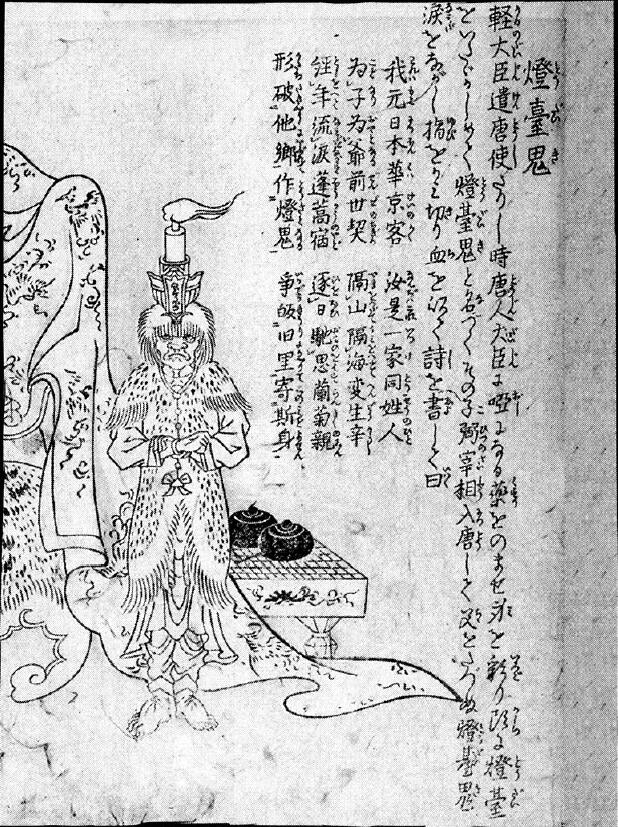 燈臺鬼
軽大臣遣唐使たりし時唐人大臣に唖になる薬をのませ身を彩り頭に燈臺
をいたゞかしめて燈臺鬼と名づくその子弼宰相入唐して父をたづぬ燈臺鬼
涙をながし指をかみ切り血を以て詩を書して曰
我元日本華京客 汝是一家同姓人
為子為爺前世契 隔山隔海変生辛
經年流涙蓬蒿宿 逐日馳思蘭菊親
形破他郷作燈鬼 争皈旧里寄斯身